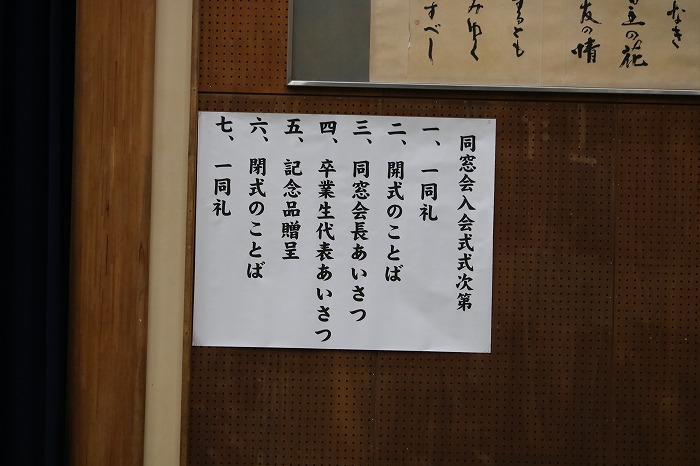 同窓会入会式式次第
一、一同礼
二、開式のことば
三、同窓会長あいさつ
四、卒業生代表あいさつ
五、記念品贈呈
六、閉式のことば
七、一同礼
なき
主の花
友の情
するとも
みゆく
すべし